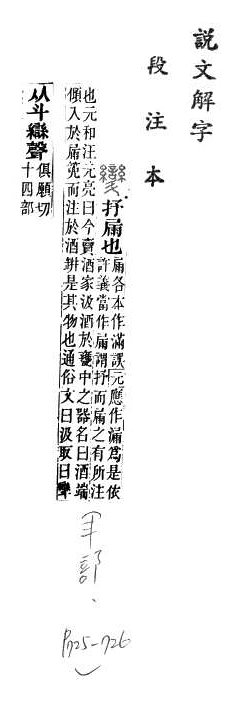 説文解字
段注本
抒屚也
屚各本作滿誤元應作漏爲是依
許義當作屚謂抒而屚之有所注
也元和汪元亮曰今賣酒家汲酒於甕中之器名曰酒端
傾入於屚筧而注於酒缾是其物也通俗文曰汲取曰
从斗䜌聲
俱願切
十四部
斗部、
P725-726